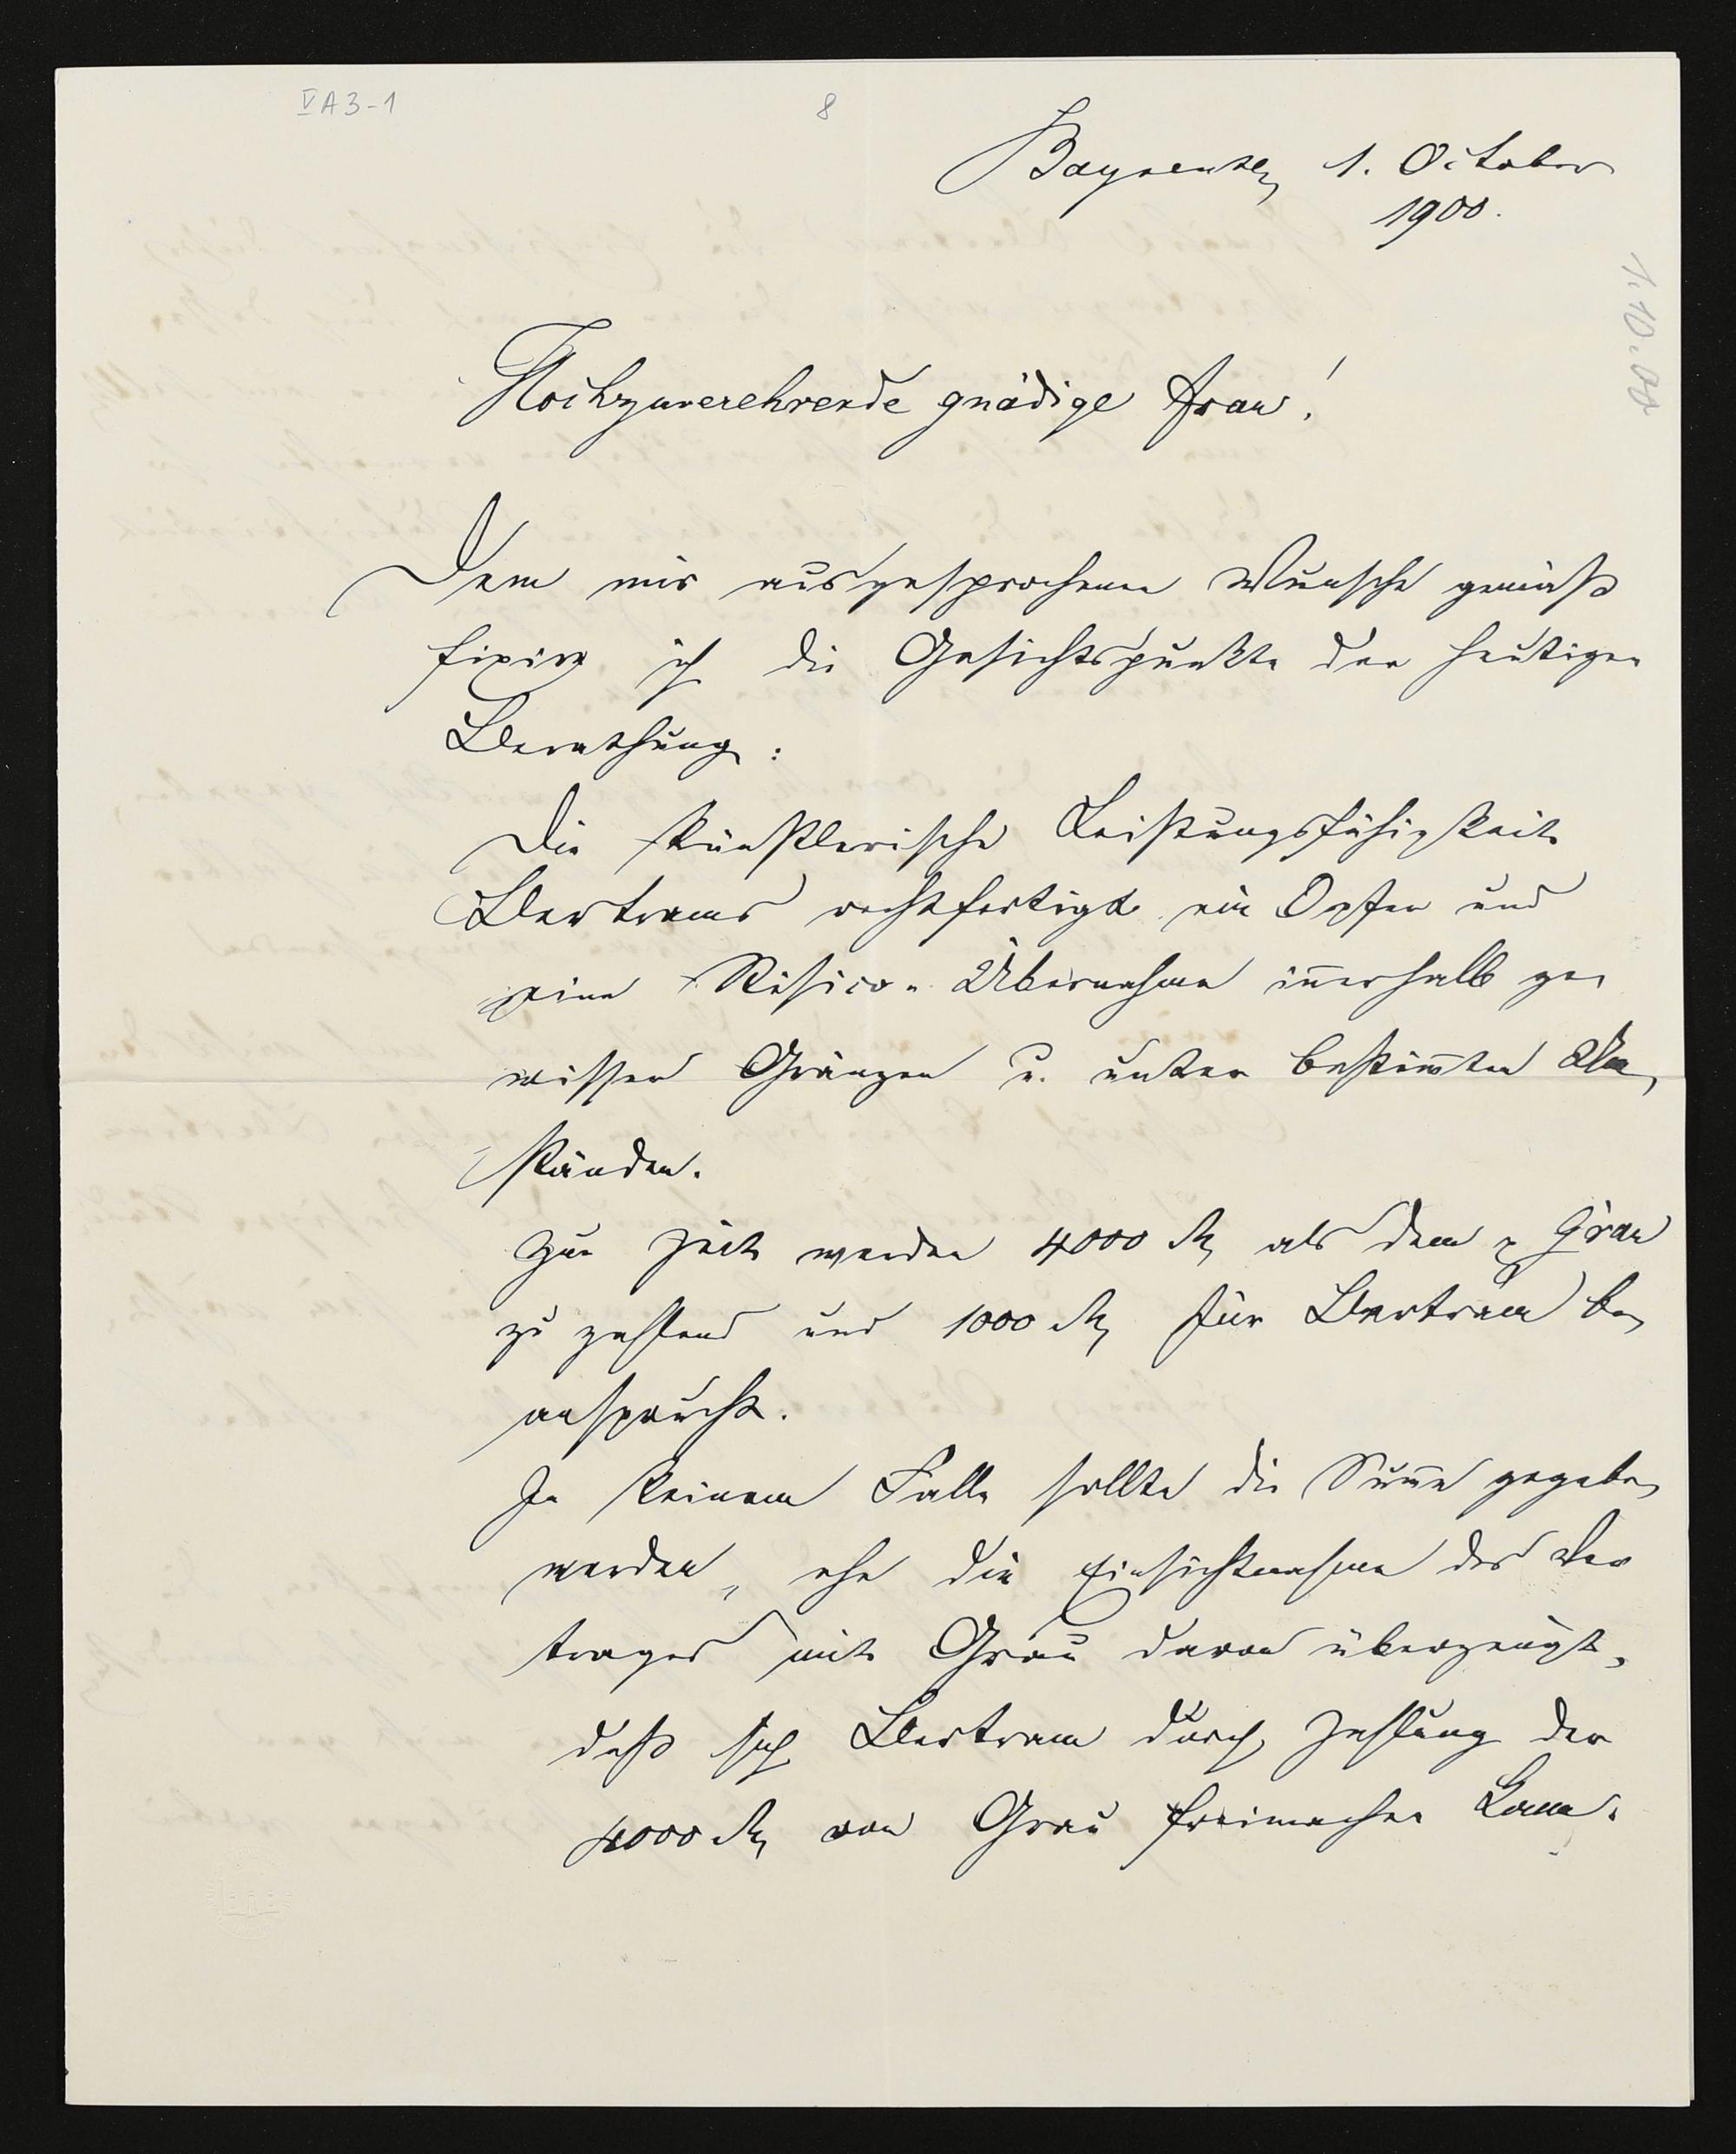 VA3-1
8
Bayreuth, 1. October
1900.
1.10.00
Hochzuverehrende gnädige Frau!
Dem mir ausgesprochenen Wunsche gemäß
fixire ich die Gesichtspunkte der heutigen
Berathung:
Die künstlerische Leistungsfähigkeit
Bertrams rechtfertigt ein Opfer und
eine Risico-Übernahme iñerhalb ge-
wisser Gränzen u. unter bestim̃ten Um-
ständen.
Zur Zeit werden 4000 M als dem Grau
zu zahlend und 1000 M für Bertram be-
ansprucht.
In keinem Falle sollte die Sum̃e gegeben
werden, ehe die Einsichtnahme des Ver
trages mit Grau davon überzeugt,
daß sich Bertram durch Zahlung der
4000 M von Grau freimachen kann.